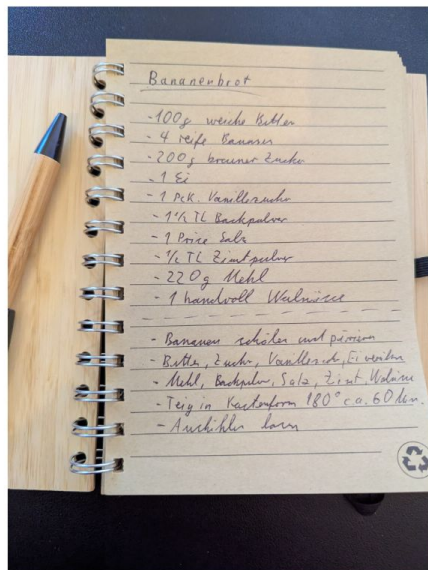 Bananenbrot
- 100g weiche Butter
- 4 reife Bananen
- 200g brauner Zucker
- 1 Ei
- 1 Pck. Vanillezucker
- 1 ½ TL Backpulver
- 1 Prise Salz
- ½ TL Zimtpulver
- 220g Mehl
- 1 handvoll Walnüsse
- Bananen schälen und pürieren
- Butter, Zucker, Vanillezuck, Ei
- Mehl, Backpulver, Salz, Zimt, Walnüsse
- Teig in Kastenform 180° ca. 60 Min.
- Auskühlen lassen